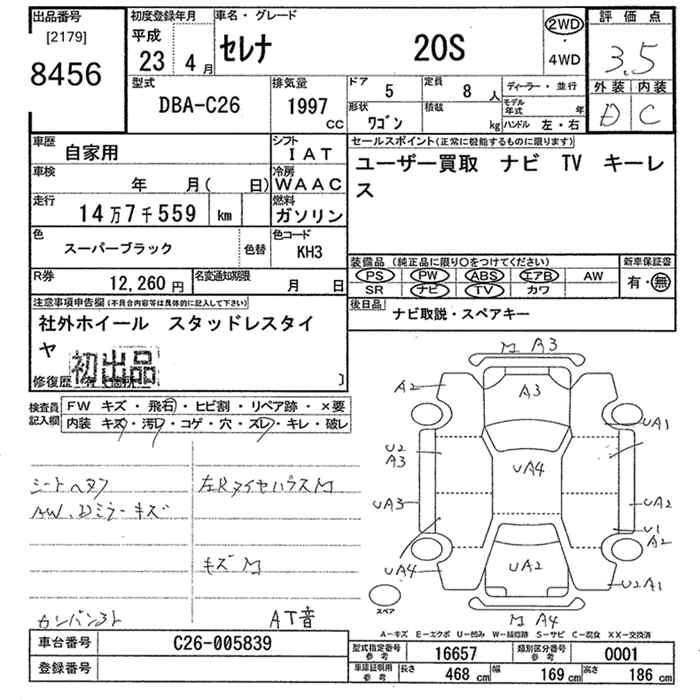 出品番号
[2179]
8456
初度登録年月
平成
23 4月
車名・グレード
セレナ 20S
2WD
・
4WD
評価点
3.5
外装 内装
D C
型式
DBA-C26
排気量
1997 CC
ドア 5
定員 8 人
形状 ワゴン
積載 kg
ディーラー・並行
モデル年式 年
ハンドル 左・右
車歴 自家用
シフト IAT
車検 年 月( 日)
冷房 WAAC
走行 14万7千559 km
燃料 ガソリン
色 スーパーブラック 色替
色コード KH3
R券 12,260円
名変通知期限 月 日
セールスポイント(正常に機能するものに限ります)
ユーザー買取 ナビ TV キーレ
ス
装備品(純正品に限り○をつけてください)
PS PW ABS エアB AW
SR ナビ TV カワ
新車保証書
有・無
後日品 ナビ取説・スペアキー
注意事項申告欄(不具合内容等は具体的に記入して下さい)
社外ホイール スタッドレスタイ
ヤ
初出品
修復歴
検査員記入欄
FW キズ・飛石・ヒビ割・リペア跡・×要
内装 キズ・汚レ・コゲ・穴・スレ・キレ・破レ
シートヘタリ
AW、Dミラーキズ
左Rタイヤハウス M
キズ M
AT音
M A3
A2
A3
UA1
U2
A3
UA4
UA3
UA2
U1
A2
UA4
UA2
U2A1
M A4
スペア
A-キズ E-エクボ U-凹み W-補修跡 S-サビ C-腐食 XX-交換済
車台番号 C26-005839
登録番号
型式指定番号 参考 16657
類別区分番号 参考 0001
車庫証明用 参考 長さ 468 cm 幅 169 cm 高さ 186 cm